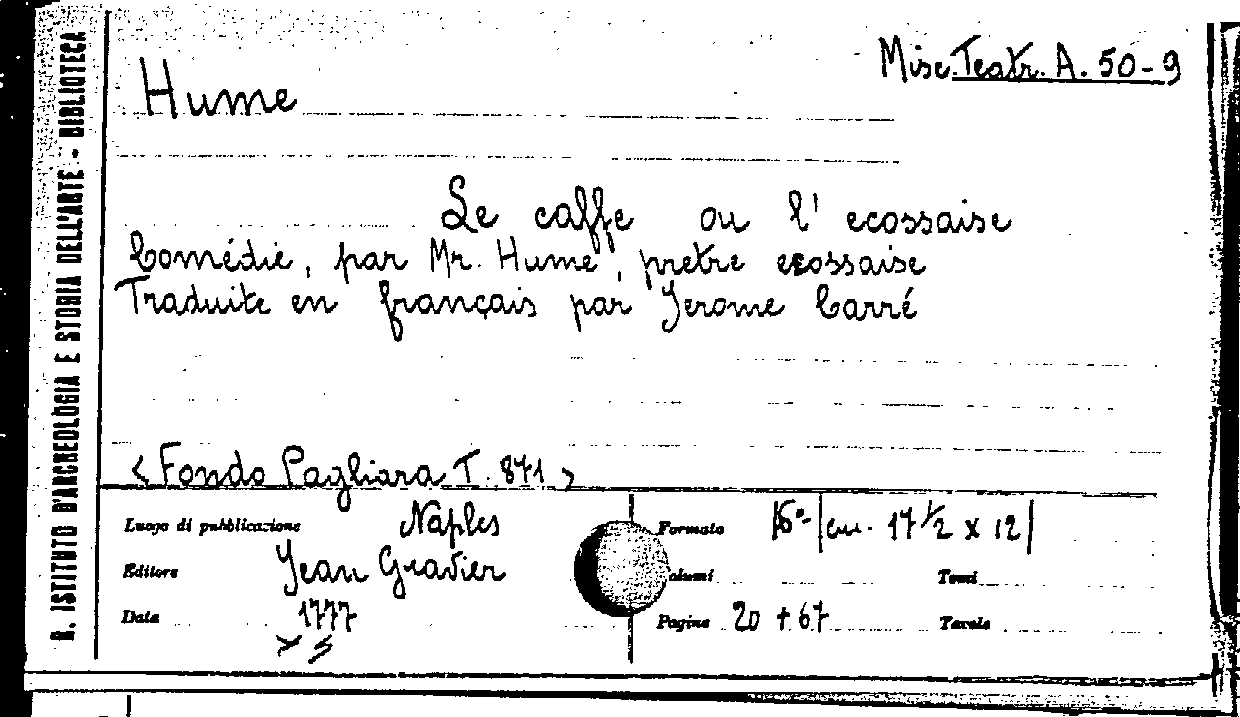 Misc. Teatr. A. 50-9
Hume
Le caffe ou l' ecossaise
Comédie, par Mr. Hume, pretre ecossaise
Traduite en français par Jerome Carré
< Fondo Pagliara T. 871 >
Luogo di pubblicazione Naples
Editore Jean Gravier
Data 1777
Formato 16°- | cm. 17 1/2 x 12 |
olumi Tomi
Pagine 20 + 67 Tavole
R. ISTITUTO D'ARCHEOLOGIA E STORIA DELL'ARTE - BIBLIOTECA